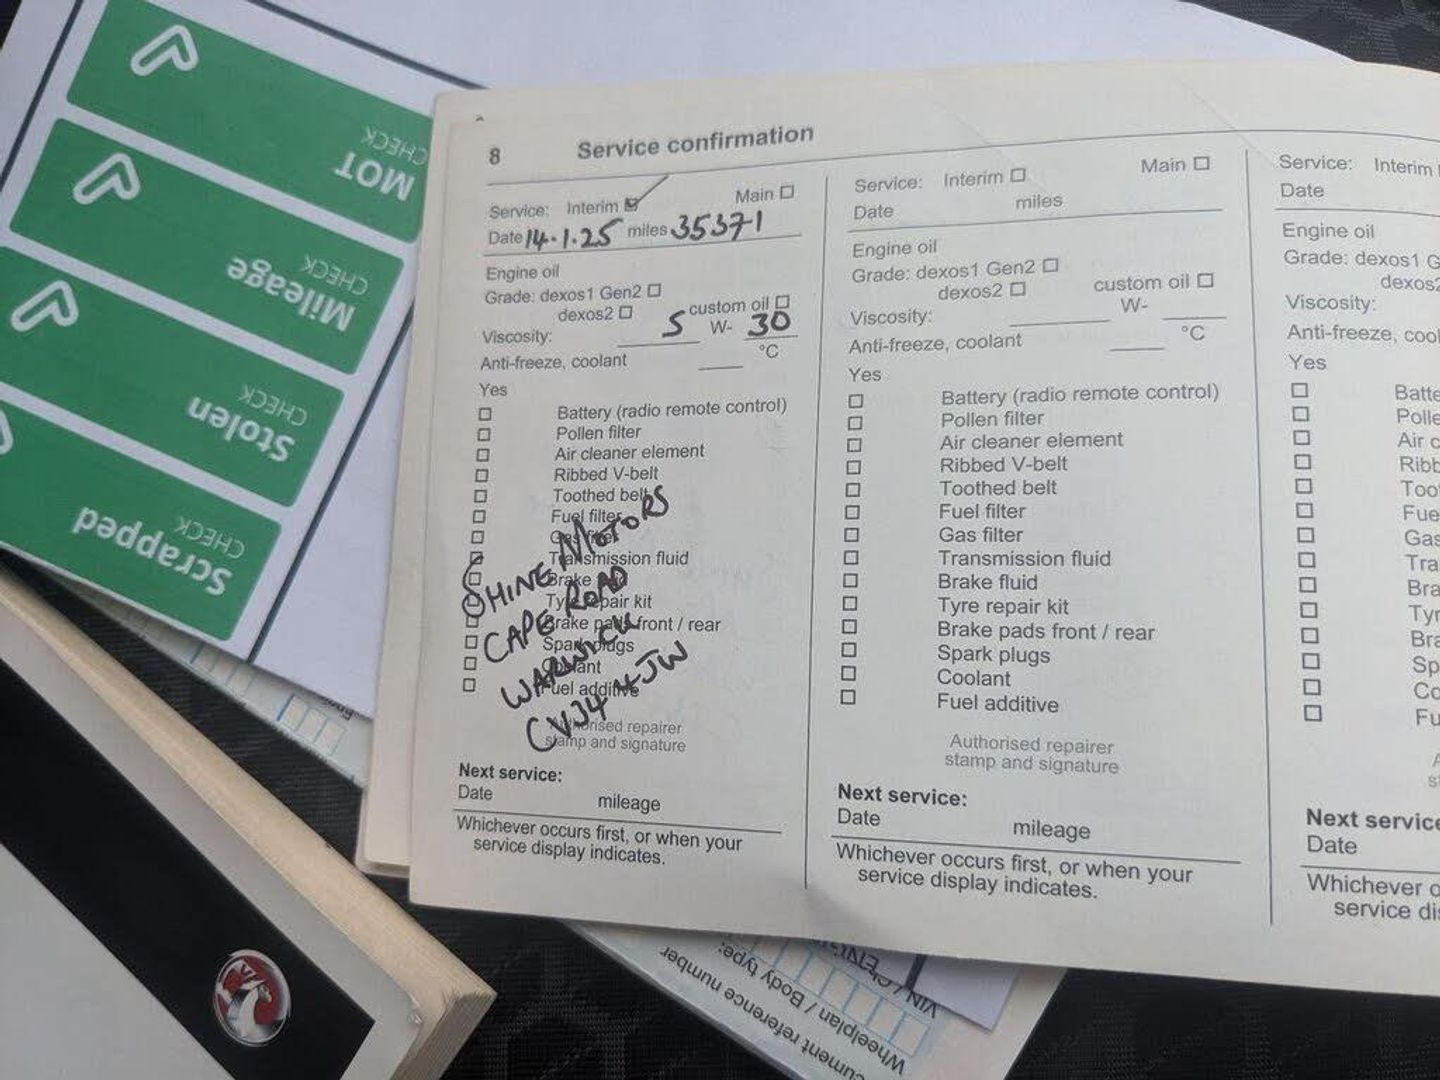 MOT
CHECK
Mileage
CHECK
Stolen
CHECK
Scrapped
CHECK
8 Service confirmation
Service: Interim ☑ Main ☐
Date 14.1.25 miles 35371
Engine oil
Grade: dexos1 Gen2 ☐
dexos2 ☐ custom oil ☐
Viscosity: 5 W- 30
Anti-freeze, coolant ___ °C
Yes
☐ Battery (radio remote control)
☐ Pollen filter
☐ Air cleaner element
☐ Ribbed V-belt
☐ Toothed belt
☐ Fuel filter
☐ Gas filter
☐ Transmission fluid
☐ Brake fluid
☐ Tyre repair kit
☐ Brake pads front / rear
☐ Spark plugs
☐ Coolant
☐ Fuel additive
SHINE MOTORS
CAPE ROAD
WARWICK
CV34 4JW
Authorised repairer
stamp and signature
Next service:
Date mileage
Whichever occurs first, or when your
service display indicates.
Service: Interim ☐ Main ☐
Date miles
Engine oil
Grade: dexos1 Gen2 ☐
dexos2 ☐ custom oil ☐
Viscosity: ___ W- ___
Anti-freeze, coolant ___ °C
Yes
☐ Battery (radio remote control)
☐ Pollen filter
☐ Air cleaner element
☐ Ribbed V-belt
☐ Toothed belt
☐ Fuel filter
☐ Gas filter
☐ Transmission fluid
☐ Brake fluid
☐ Tyre repair kit
☐ Brake pads front / rear
☐ Spark plugs
☐ Coolant
☐ Fuel additive
Authorised repairer
stamp and signature
Next service:
Date mileage
Whichever occurs first, or when your
service display indicates.
Service: Interim
Date
Engine oil
Grade: dexos1 G
dexos2
Viscosity:
Anti-freeze, cool
Yes
☐ Batte
☐ Polle
☐ Air c
☐ Ribb
☐ Too
☐ Fue
☐ Gas
☐ Tra
☐ Bra
☐ Tyr
☐ Bra
☐ Sp
☐ Co
☐ Fu
Next service
Date
Whichever o
service dis
VIN / 
Wheelplan / Body type:
cument reference number